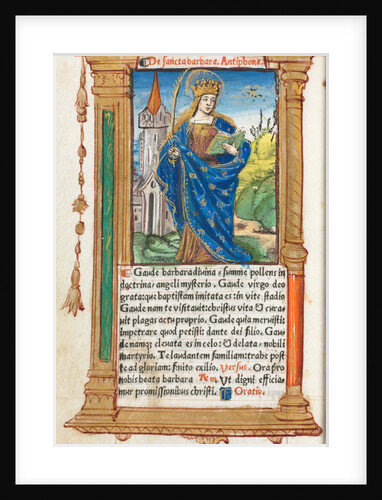 De sancta barbara. Antiphone.
Gaude barbara diuina: summe pollens in
doctrina: angeli mysterio. Gaude virgo deo
grata: que baptistam imitata es: in vite stadio
Gaude nam te visitauit: christus vita & cura
uit plagas actu proprio. Gaude quia meruisti:
impetrare quod petisti: dante dei filio. Gau
de namq; eleuata es in celo: & delata: nobili
martyrio. Te laudantem familiam: trahe post
te ad gloriam: finito exilio. Versus. Ora pro
nobis beata barbara Re. Ut digni efficia
mur promissionibus christi. Oratio.